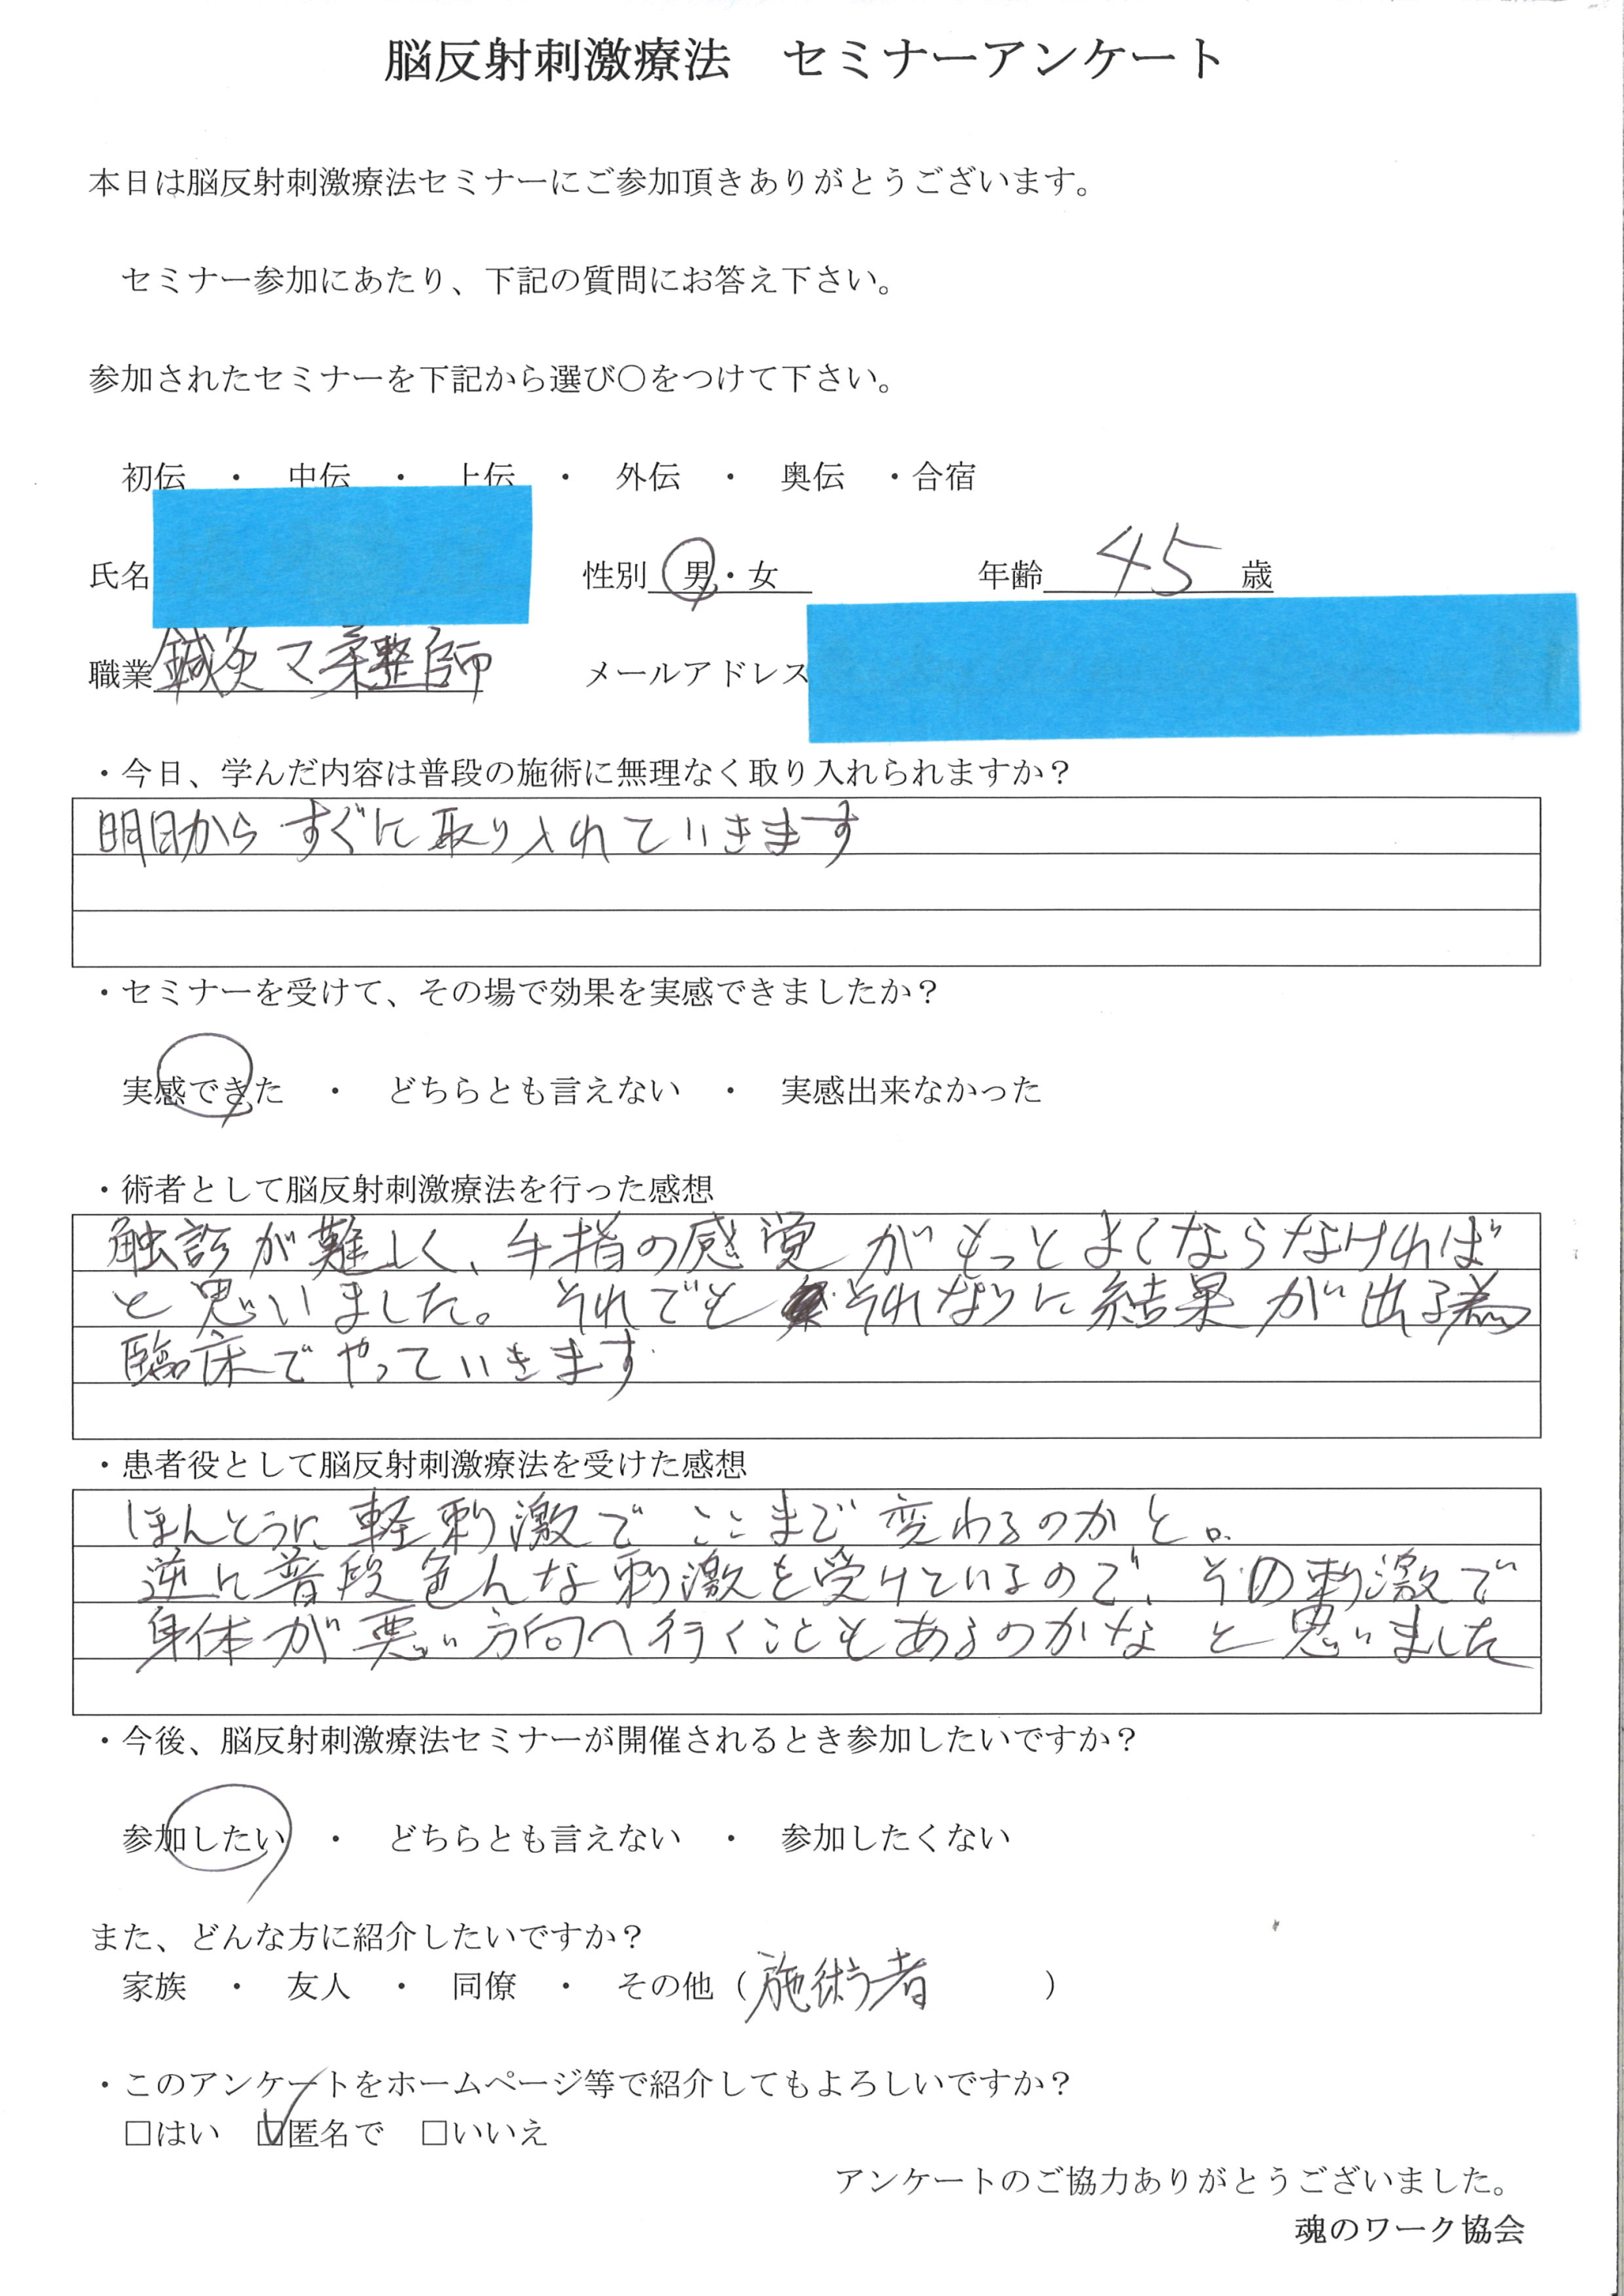 脳反射刺激療法　セミナーアンケート
本日は脳反射刺激療法セミナーにご参加頂きありがとうございます。
セミナー参加にあたり、下記の質問にお答え下さい。
参加されたセミナーを下記から選び〇をつけて下さい。
初伝　・　中伝　・　上伝　・　外伝　・　奥伝　・合宿
氏名　性別　男・女　年齢　45　歳
職業 鍼灸マ柔整師　メールアドレス
・今日、学んだ内容は普段の施術に無理なく取り入れられますか？
明日から すぐに取り入れていきます
・セミナーを受けて、その場で効果を実感できましたか？
実感できた　・　どちらとも言えない　・　実感出来なかった
・術者として脳反射刺激療法を行った感想
触診が難しく、手指の感覚がもっとよくならなければ
と思いました。それでも それなりに結果が出る為
臨床でやっていきます
・患者役として脳反射刺激療法を受けた感想
ほんとうに軽刺激で ここまで変わるのかと。
逆に普段色んな刺激を受けているので、その刺激で
身体が悪い方向へ行くこともあるのかな と思いました
・今後、脳反射刺激療法セミナーが開催されるとき参加したいですか？
参加したい　・　どちらとも言えない　・　参加したくない
また、どんな方に紹介したいですか？
家族　・　友人　・　同僚　・　その他（施術者　）
・このアンケートをホームページ等で紹介してもよろしいですか？
□はい　☑匿名で　□いいえ
アンケートのご協力ありがとうございました。
魂のワーク協会